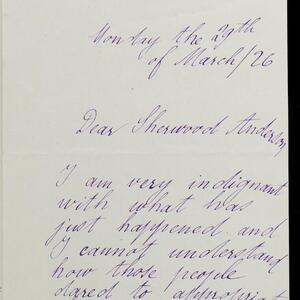 Monday the 29th
of March/26
Dear Sherwood Anderson
I am very indignant
with what has
just happened and
I cannot understand
how those people
dared to appropri